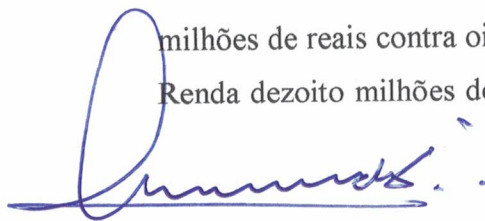 milhões de reais contra oi
Renda dezoito milhões de